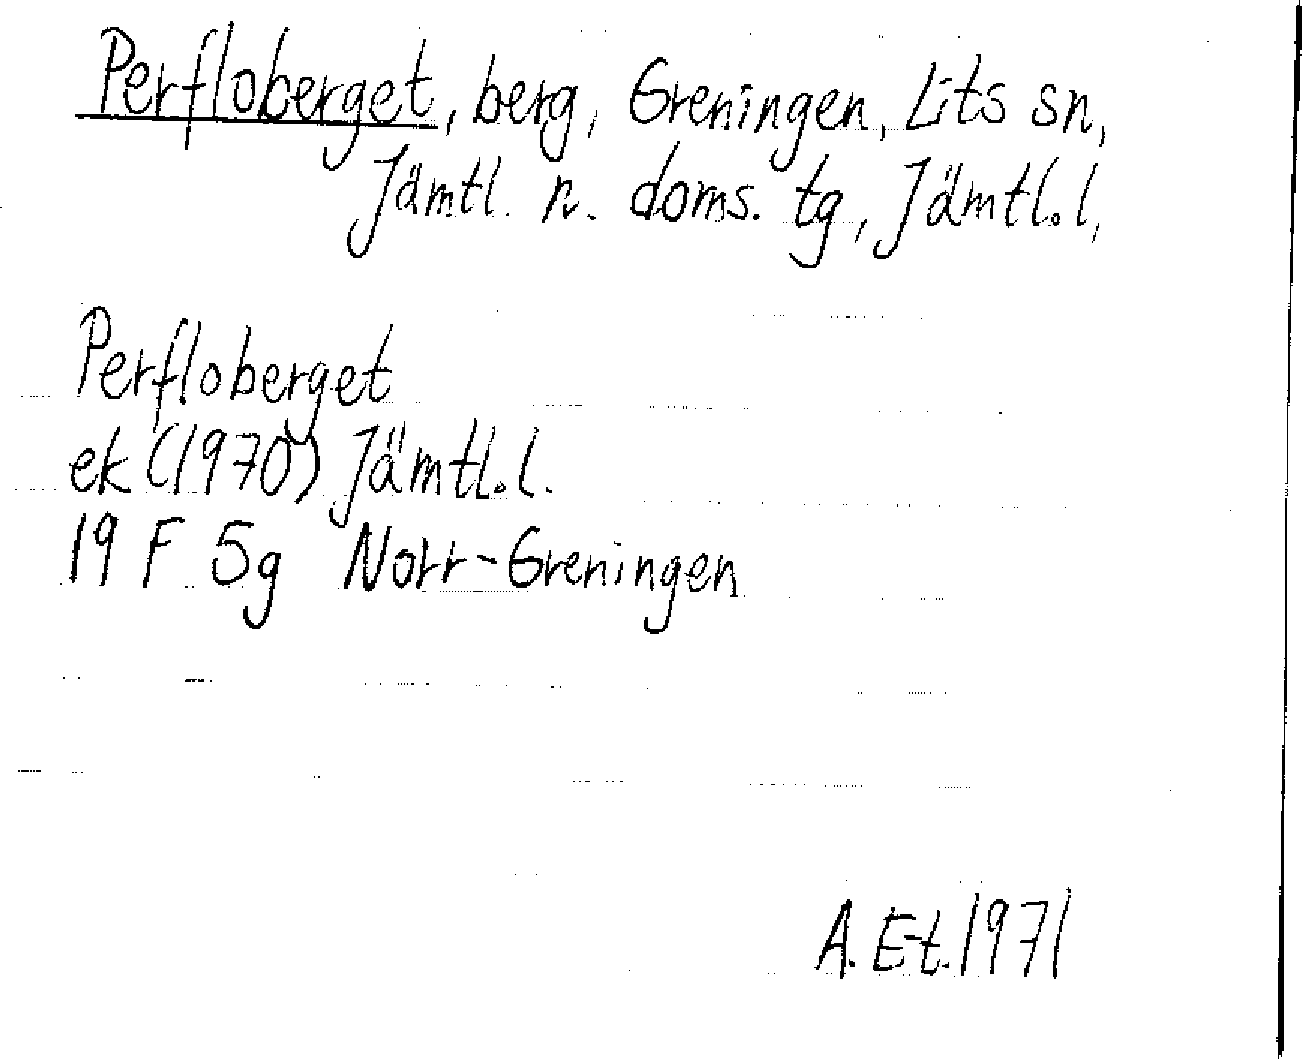 Perfloberget, berg, Greningen, Lits sn,
Jämtl. n. doms. tg, Jämtl. l,
Perfloberget
ek (1970) Jämtl. l.
19 F 5g Norr-Greningen
A. E-t. 1971